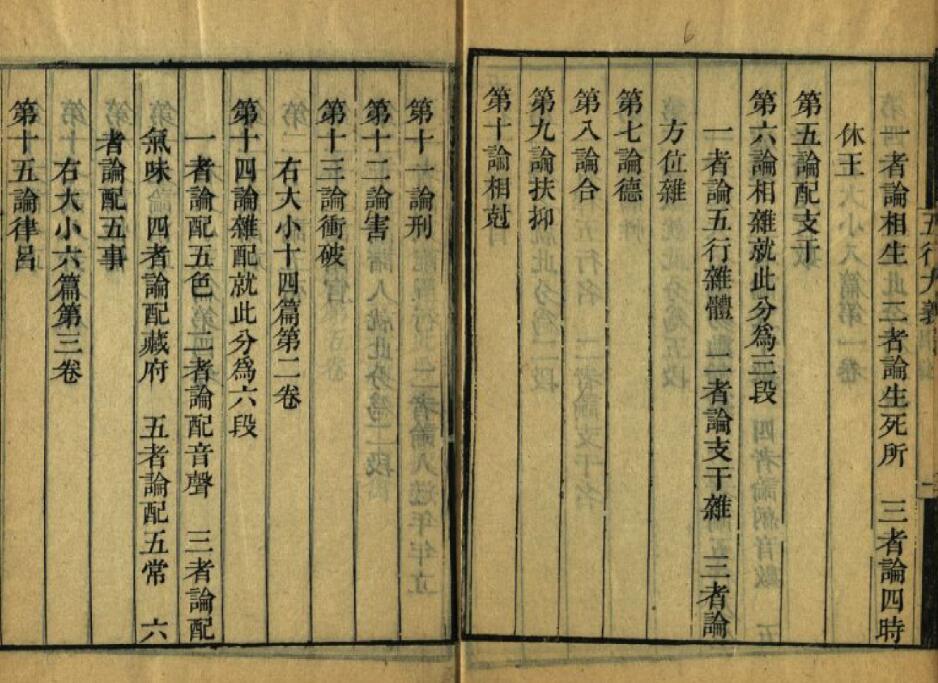 一者論相生 二者論生死所 三者論四時
休王
第五論配支干
第六論相雜就此分爲三段
一者論五行雜體 二者論支干雜 三者論
方位雜
第七論德
第八論合
第九論扶抑
第十論相尅
第十一論刑
第十二論害
第十三論衝破
右大小十四篇第二卷
第十四論雜配就此分爲六段
一者論配五色 二者論配音聲 三者論配
氣味 四者論配藏府 五者論配五常 六
者論配五事
右大小六篇第三卷
第十五論律呂